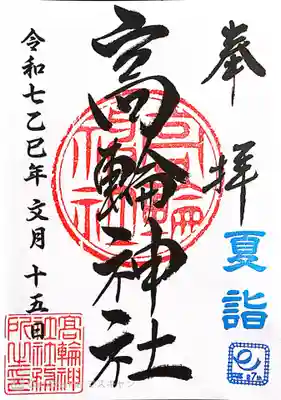 奉拝
夏詣
高輪神社
令和七乙巳年 文月 十五日
高輪神
社社務
所之印